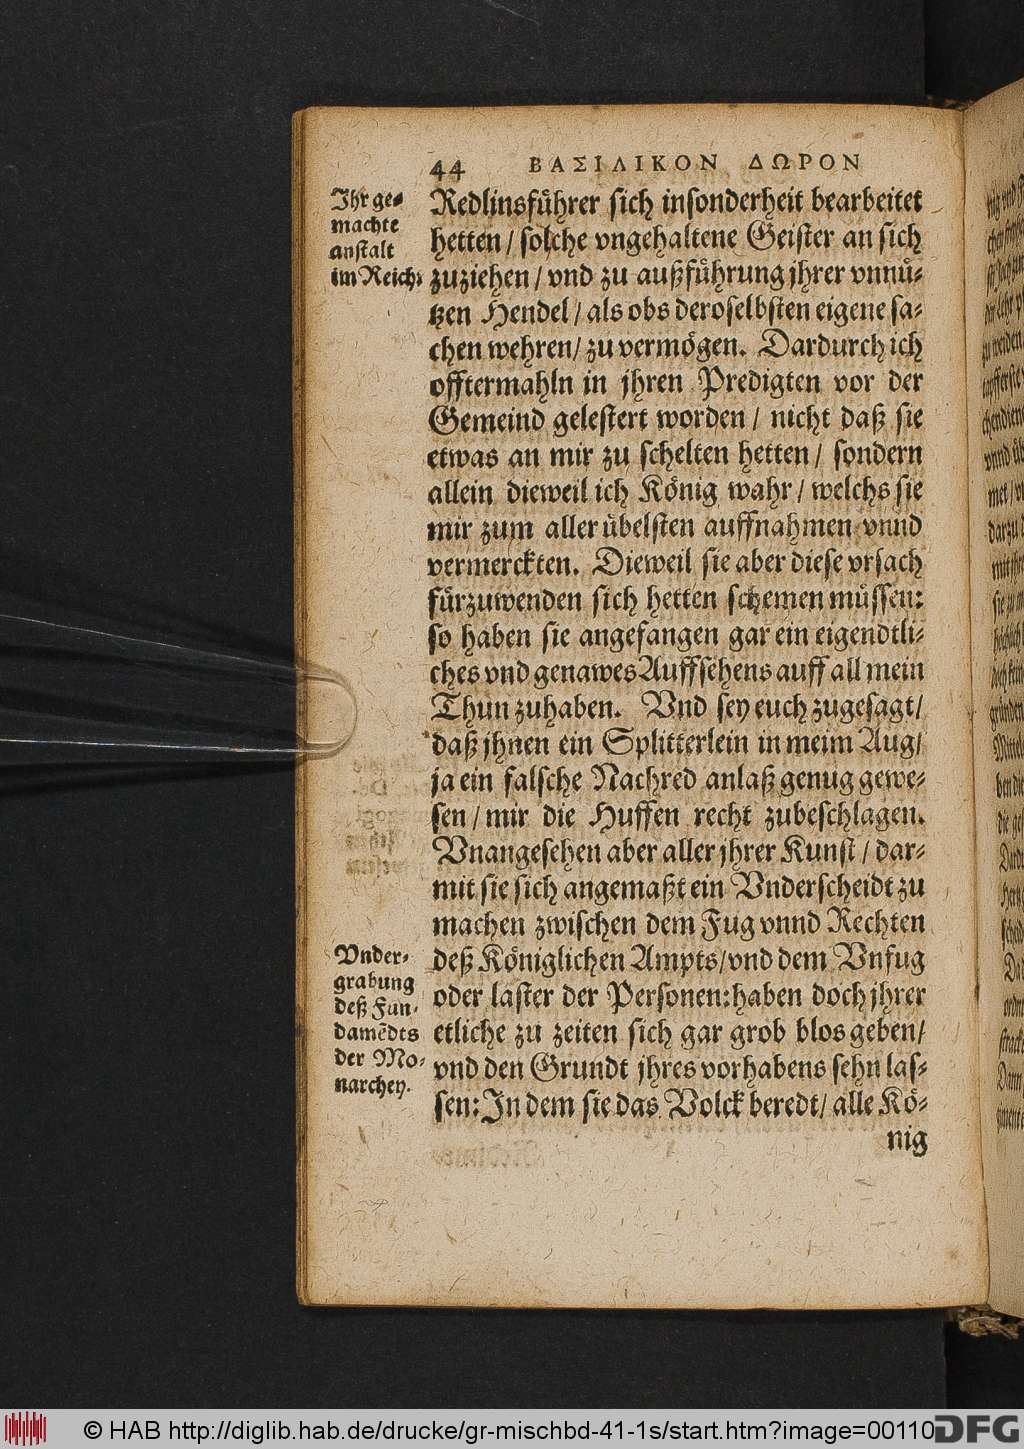 44 ΒΑΣΙΛΙΚΟΝ ΔΩΡΟΝ
Jhr ge-
machte
anstalt
im Reich:
Redlinsführer sich insonderheit bearbeitet
hetten / solche vngehaltene Geister an sich
zuziehen / vnd zu außführung jhrer vnnü-
tzen Hendel / als obs deroselbsten eigene sa-
chen wehren / zu vermögen. Dardurch ich
offtermahln in jhren Predigten vor der
Gemeind gelestert worden / nicht daß sie
etwas an mir zu schelten hetten / sondern
allein dieweil ich König wahr / welchs sie
mir zum aller übelsten auffnahmen vnnd
vermerckten. Dieweil sie aber diese vrsach
fürzuwenden sich hetten schemen müssen:
so haben sie angefangen gar ein eigendtli-
ches vnd genawes Auffsehens auff all mein
Thun zuhaben. Vnd sey euch zugesagt /
daß jhnen ein Splitterlein in meim Aug /
ja ein falsche Nachred anlaß genug gewe-
sen / mir die Huffen recht zubeschlagen.
Vnangesehen aber aller jhrer Kunst / dar-
mit sie sich angemaßt ein Vnderscheidt zu
machen zwischen dem Fug vnnd Rechten
deß Königlichen Ampts / vnd dem Vnfug
oder laster der Personen: haben doch jhrer
etliche zu zeiten sich gar grob blos geben /
vnd den Grundt jhres vorhabens sehn las-
sen: In dem sie das Volck beredt / alle Kö-
nig
Vnder-
grabung
deß Fun-
damẽdts
der Mo-
narchey.
© HAB http://diglib.hab.de/drucke/gr-mischbd-41-1s/start.htm?image=00110
DFG